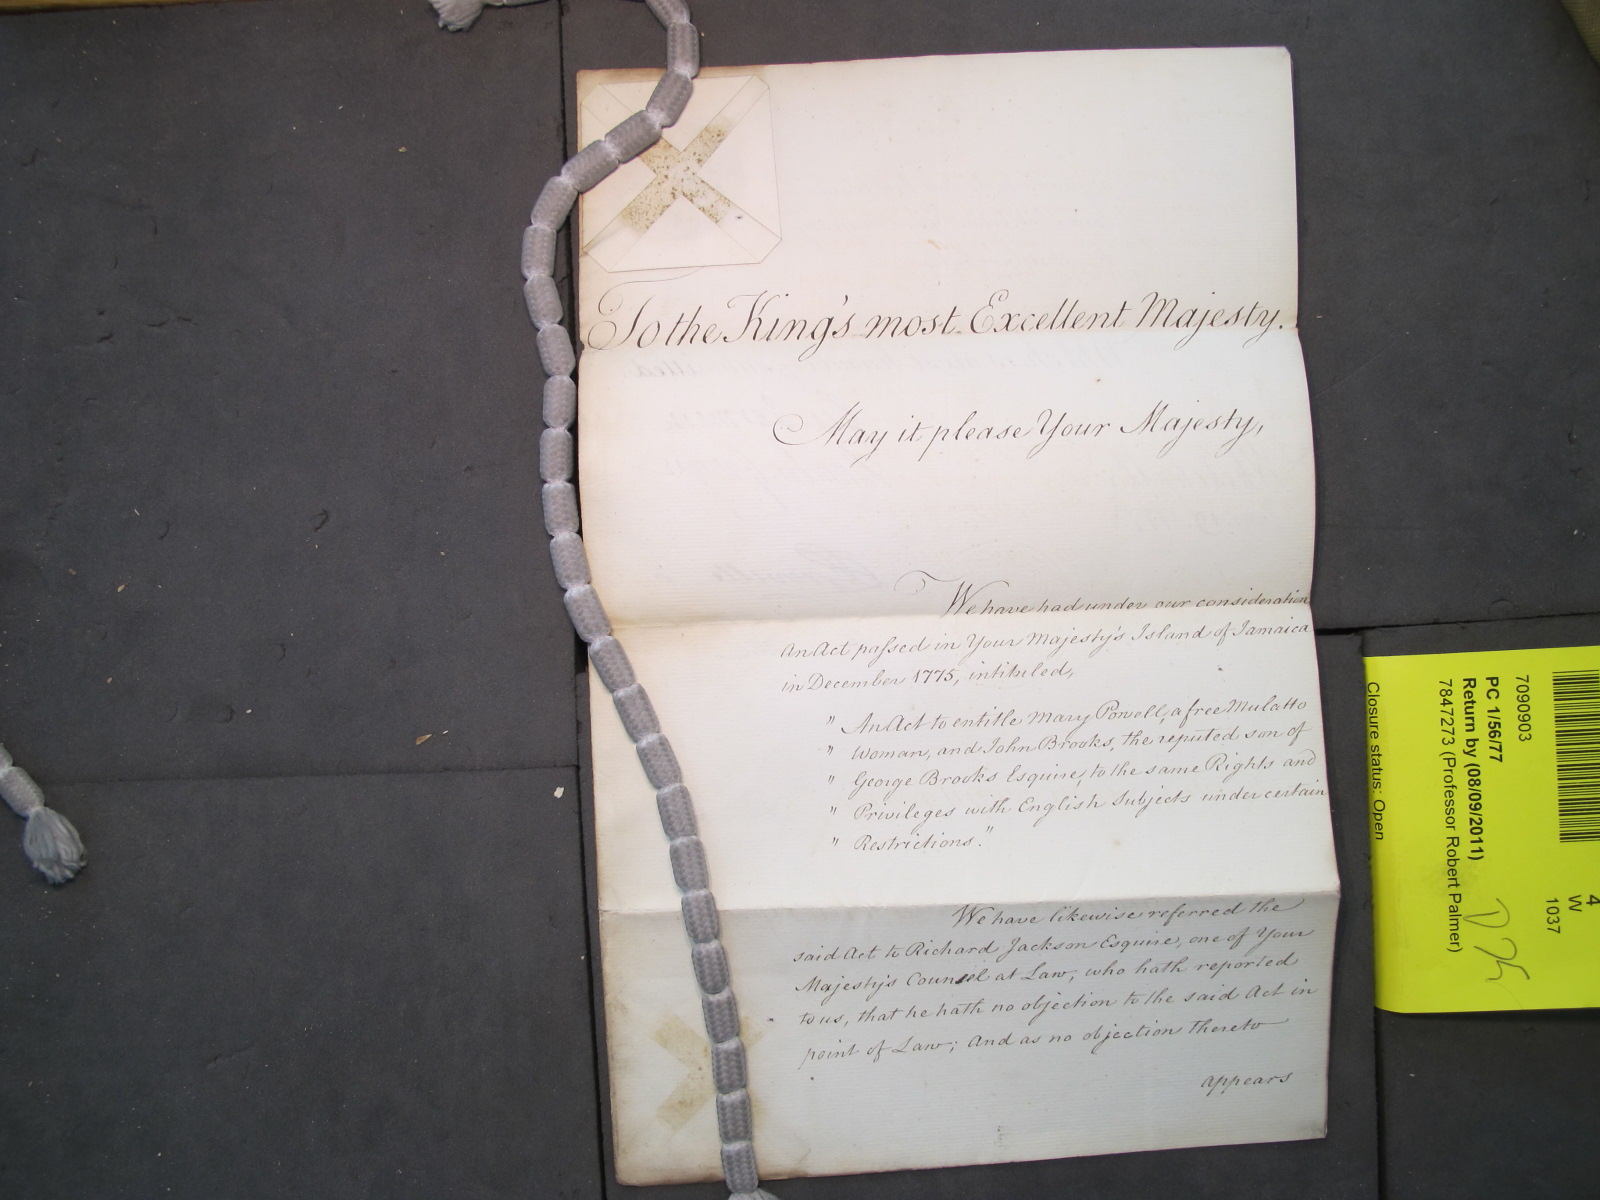 To the King's most Excellent Majesty.
May it please Your Majesty,
We have had under our consideration
an Act passed in Your Majesty's Island of Jamaica
in December 1775, intituled,
" An Act to entitle Mary Powell, a free Mulatto
" Woman, and John Brooks, the reputed son of
" George Brooks Esquire, to the same Rights and
" Privileges with English Subjects under certain
" Restrictions."
We have likewise referred the
said Act to Richard Jackson Esquire, one of Your
Majesty's Counsel at Law, who hath reported
to us, that he hath no objection to the said Act in
point of Law; And as no objection thereto
appears
4
W
1037
7090903
PC 1/56/77
Return by (08/09/2011)
7847273 (Professor Robert Palmer)
Closure status: Open